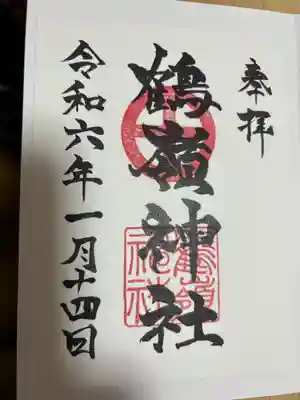 奉拝
鶴嶺神社
令和六年一月十四日